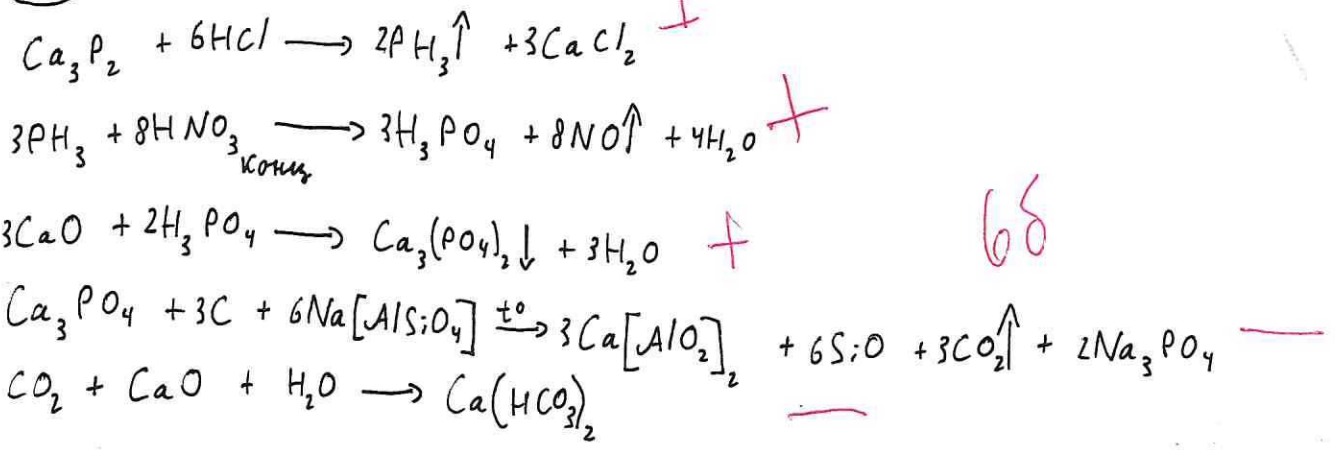 Ca₃P₂ + 6HCl ⟶ 2PH₃↑ + 3CaCl₂ +
3PH₃ + 8HNO₃ конц ⟶ 3H₃PO₄ + 8NO↑ + 4H₂O +
3CaO + 2H₃PO₄ ⟶ Ca₃(PO₄)₂↓ + 3H₂O +
6б
Ca₃PO₄ + 3C + 6Na[AlSiO₄] t° ⟶ 3Ca[AlO₂]₂ + 6SiO + 3CO₂↑ + 2Na₃PO₄ —
CO₂ + CaO + H₂O ⟶ Ca(HCO₃)₂ —